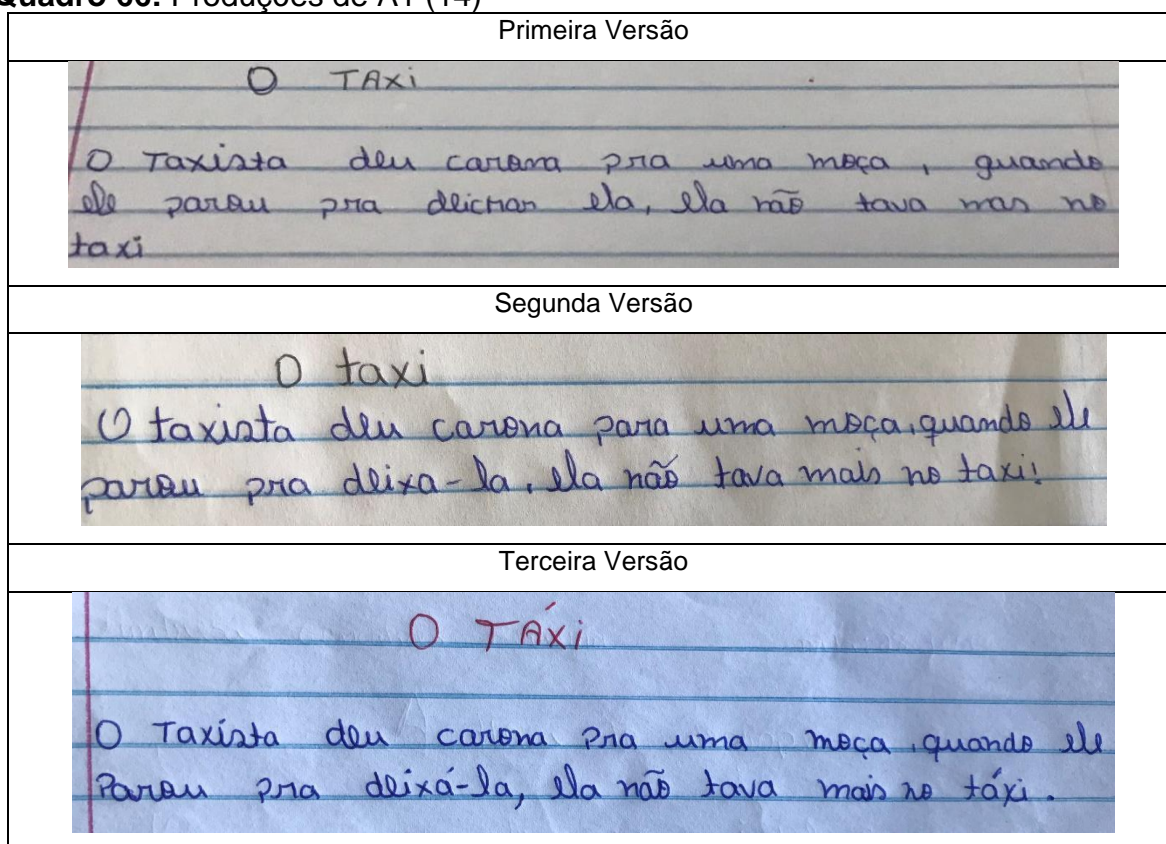 Quadro 06. Produções de A1 (14)
Primeira Versão
O TAxi
O Taxista deu carona pra uma moça, quando
ele parou pra deichar ela, ela não tava mas no
taxi
Segunda Versão
O taxi
O taxista deu carona para uma moça, quando ele
parou pra deixa-la, ela não tava mais no taxi!
Terceira Versão
O TÁxi
O Taxista deu carona pra uma moça, quando ele
Parou pra deixá-la, ela não tava mais no táxi.